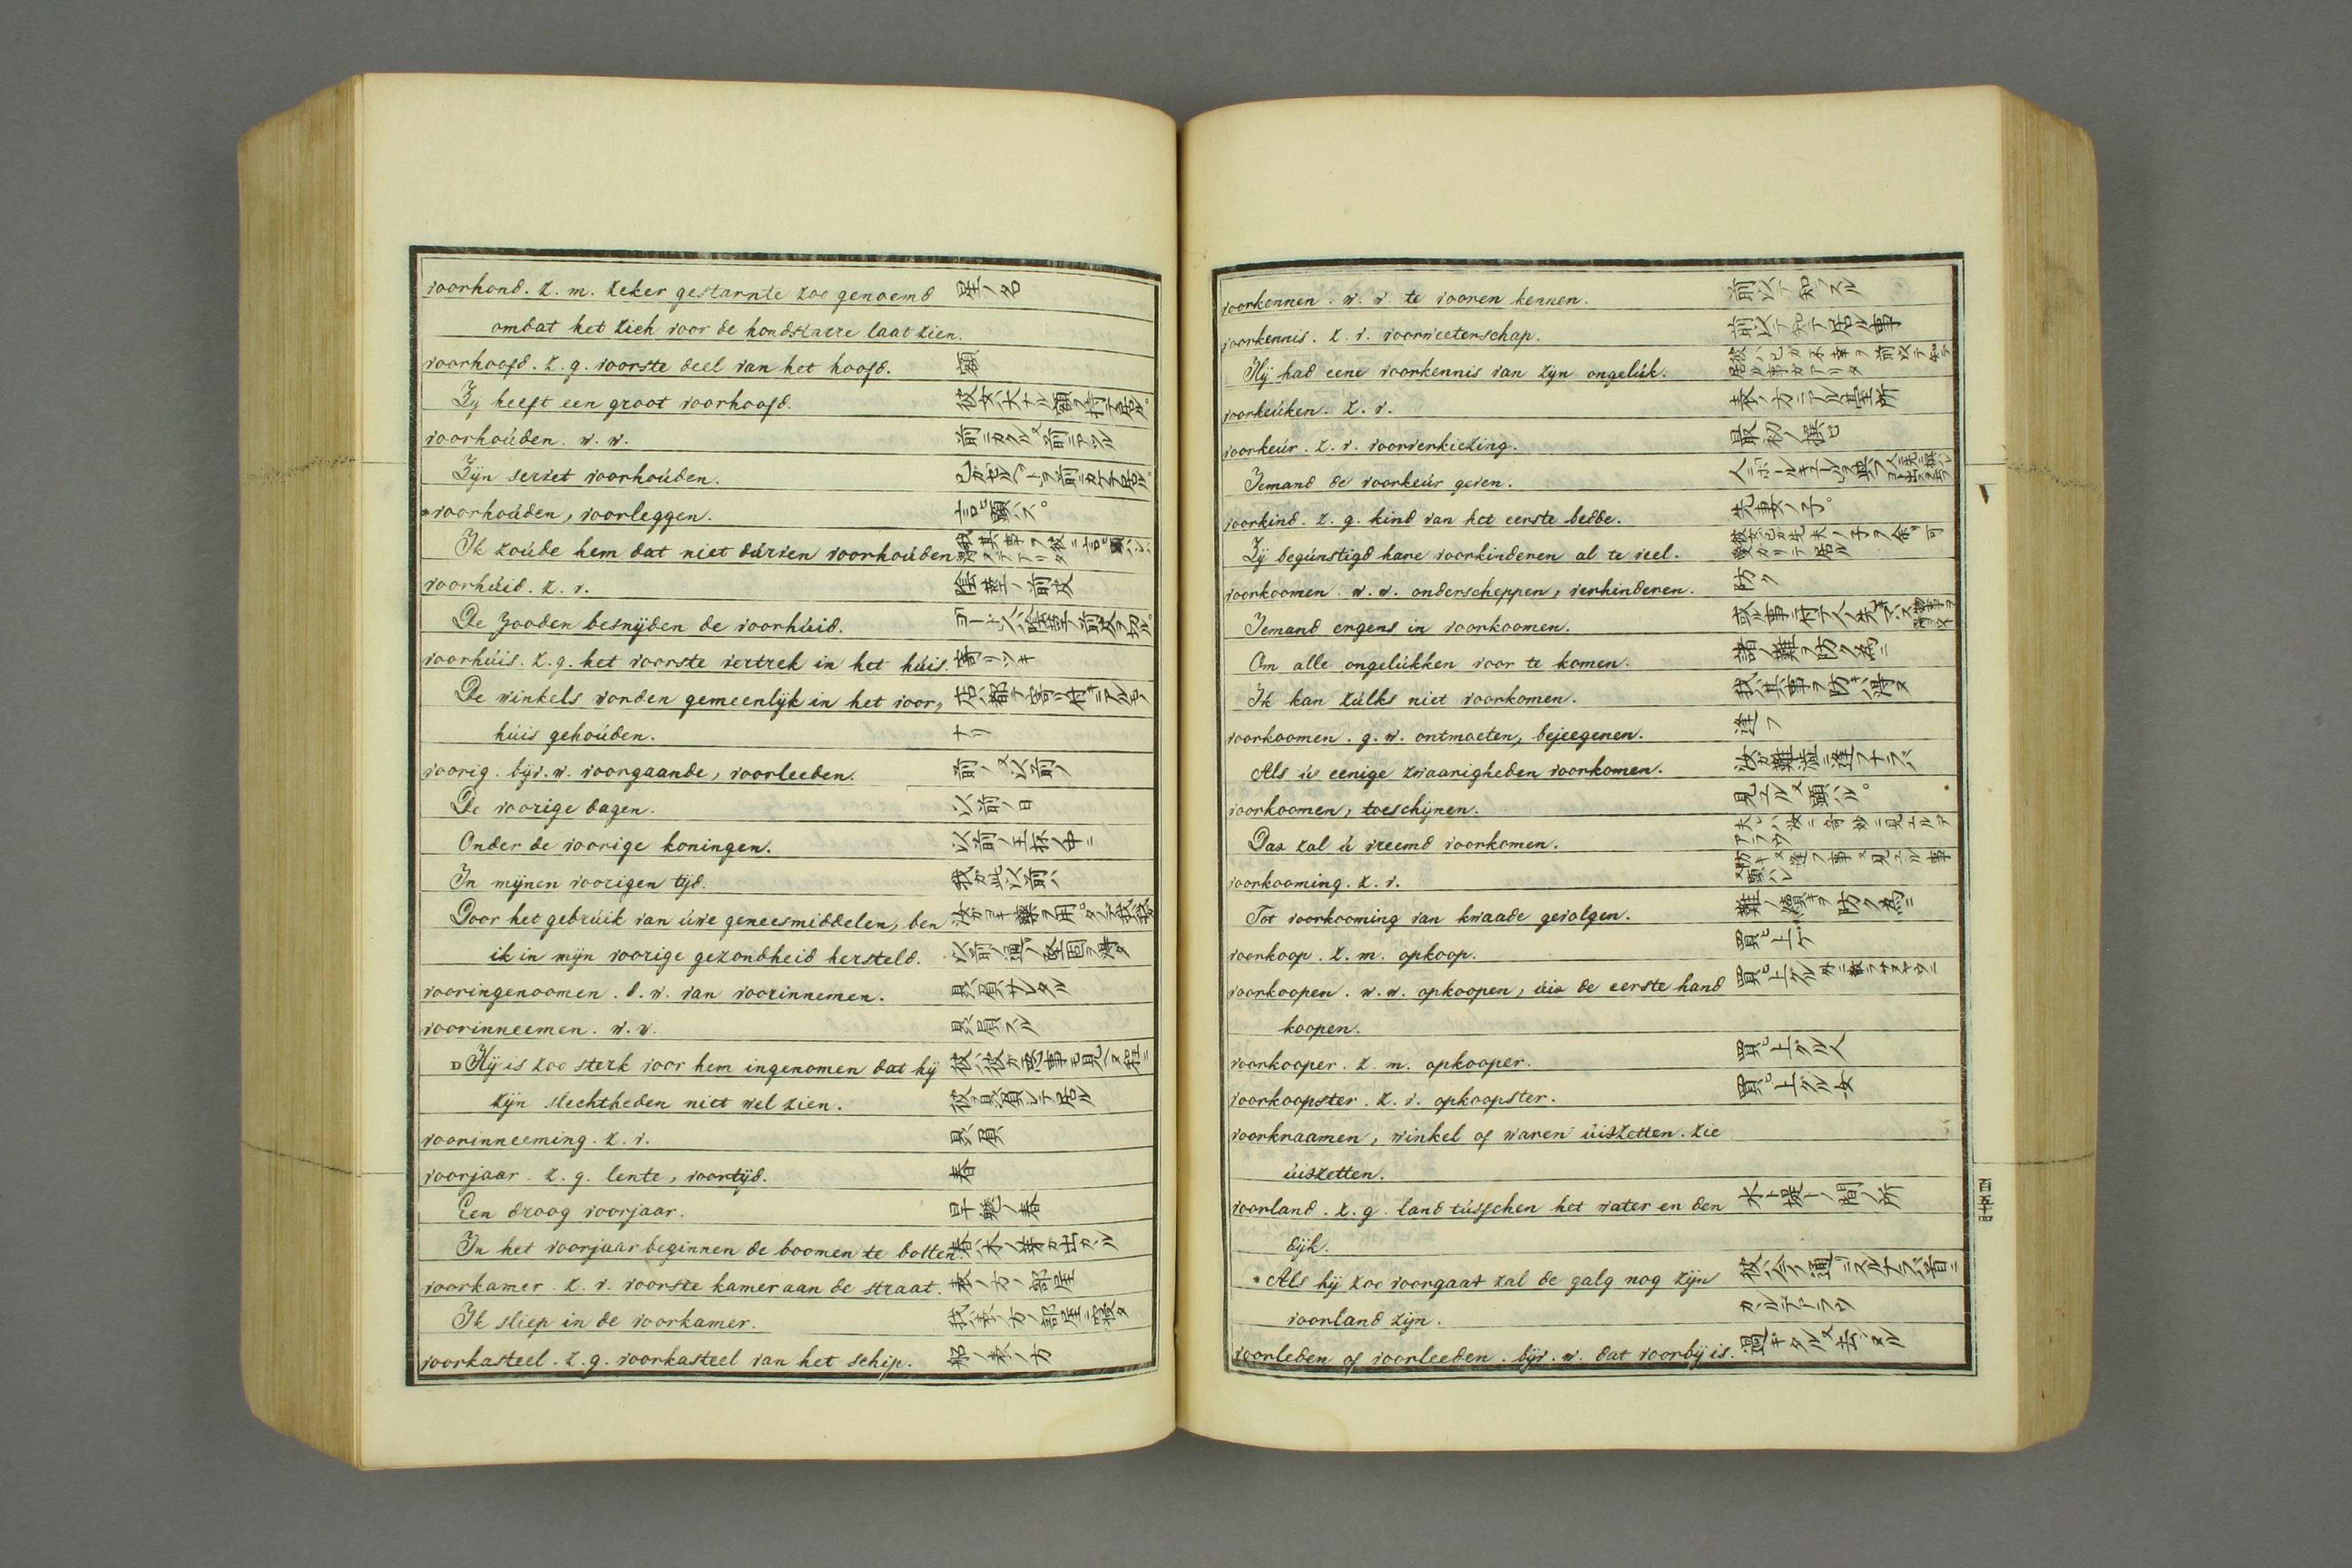 voorhond. z. m. zeker gestarnte zoo genoemd 星ノ名
omdat het zich voor de hondstarre laat zien.
voorhoofd. z. g. voorste deel van het hoofd. 額
Zy heeft een groot voorhoofd. 彼女ハ大ナル額ヲ持テ居ル。
voorhoúden. w. w.
Zÿn servet voorhoúden.
*voorhoúden, voorleggen. 言ヒ顕ハス。
Ik zoúde hem dat niet dúrven voorhoúden
voorhúid. z. v. 陰莖ノ前皮
De Jooden besnÿden de voorhúid. ヨードハ陰莖ノ前皮ヲ切ル。
voorhúis. z. g. het voorste vertrek in het húis. 寄リツキ
De winkels worden gemeenlÿk in het voor,
húis gehoúden. ナリ
voorig. bÿv. w. voorgaande, voorleeden. 前ノ又以前ノ
De voorige dagen. 以前ノ日
Onder de voorige koningen. 以前ノ王等ノ中ニ
In mÿnen voorigen tÿd. 我ガ此以前ハ
Door het gebrúik van úwe geneesmiddelen, ben
ik in mÿn voorige gezondheid hersteld. 以前ノ通ノ堅固ヲ得タ
vooringenoomen. d. w. van voorinnemen. 贔屓サレタル
voorinneemen. w. w. 贔屓スル
Hÿ is zoo sterk voor hem ingenomen dat hÿ 彼ハ彼ガ悪事モ見ヘヌ程ニ
zÿn slechtheden niet wel zien. 彼ヲ贔屓シテ居ル
voorinneeming. z. v. 贔屓
voorjaar. z. g. lente, voortÿd. 春
Een droog voorjaar. 旱魃ノ春
In het voorjaar beginnen de boomen te botten. 春ハ木ノ芽ガ出カヽル
voorkamer. z. v. voorste kamer aan de straat. 表ノ方ノ部屋
Ik sliep in de voorkamer. 我ハ表ノ方ノ部屋ニ寝タ
voorkasteel. z. g. voorkasteel van het schip. 船ノ表ノ方
voorkennen. w. w. te vooren kennen. 前以テ知ヲル
voorkennis. z. v. voorweetenschap. 前以テ知テ居ル事
Hÿ had eene voorkennis van zÿn ongelúk. 彼ハ己ガ不幸ヲ前以テ知テ居ル事ガアリタ
voorkeúken. z. v. 表ノ方ニアル臺所
voorkeúr. z. v. voorverkiezing. 最初ノ撰ヒ
Iemand de voorkeúr geven.
voorkind. z. g. kind van het eerste bedde. 先妻ノ子。
Zÿ begúnstigd hare voorkinderen al te veel.
voorkoomen. w. w. onderscheppen, verhinderen. 防ク
Iemand ergens in voorkoomen.
Om alle ongelúkken voor te komen. 諸ノ難ヲ防ク為ニ
Ik kan zúlks niet voorkomen. 我ハ其事ヲ防キ得ヌ
voorkoomen. g. w. ontmoeten, bejeegenen. 逢フ
Als ú eenige zwaarigheden voorkomen. 汝ガ難澁ニ逢フナラバ
voorkoomen, toeschÿnen. 見エル又顕ハル。
Dat zal ú vreemd voorkomen. 夫レハ汝ニ奇妙ニ見エルデアラウ
voorkooming. z. v.
Tot voorkooming van kwaade gevolgen. 難ノ續キヲ防ク為ニ
voorkoop. z. m. opkoop. 買ヒ上ケ
voorkoopen. w. w. opkoopen, úit de eerste hand 買ヒ上グル
koopen.
voorkooper. z. m. opkooper. 買ヒ上グル人
voorkoopster. z. v. opkoopster. 買ヒ上グル女
voorkraamen, winkel of waren úitzetten. zie
úitzetten.
voorland. z. g. land tússchen het water en den 水ト堤トノ間ノ所
dÿk.
*Als hÿ zoo voorgaat zal de galg nog zÿn
voorland zÿn. カヽルデアラウ
voorleden of voorleeden. bÿv. w. dat voorbÿ is. 過ギタル又去ツタル
百五十四